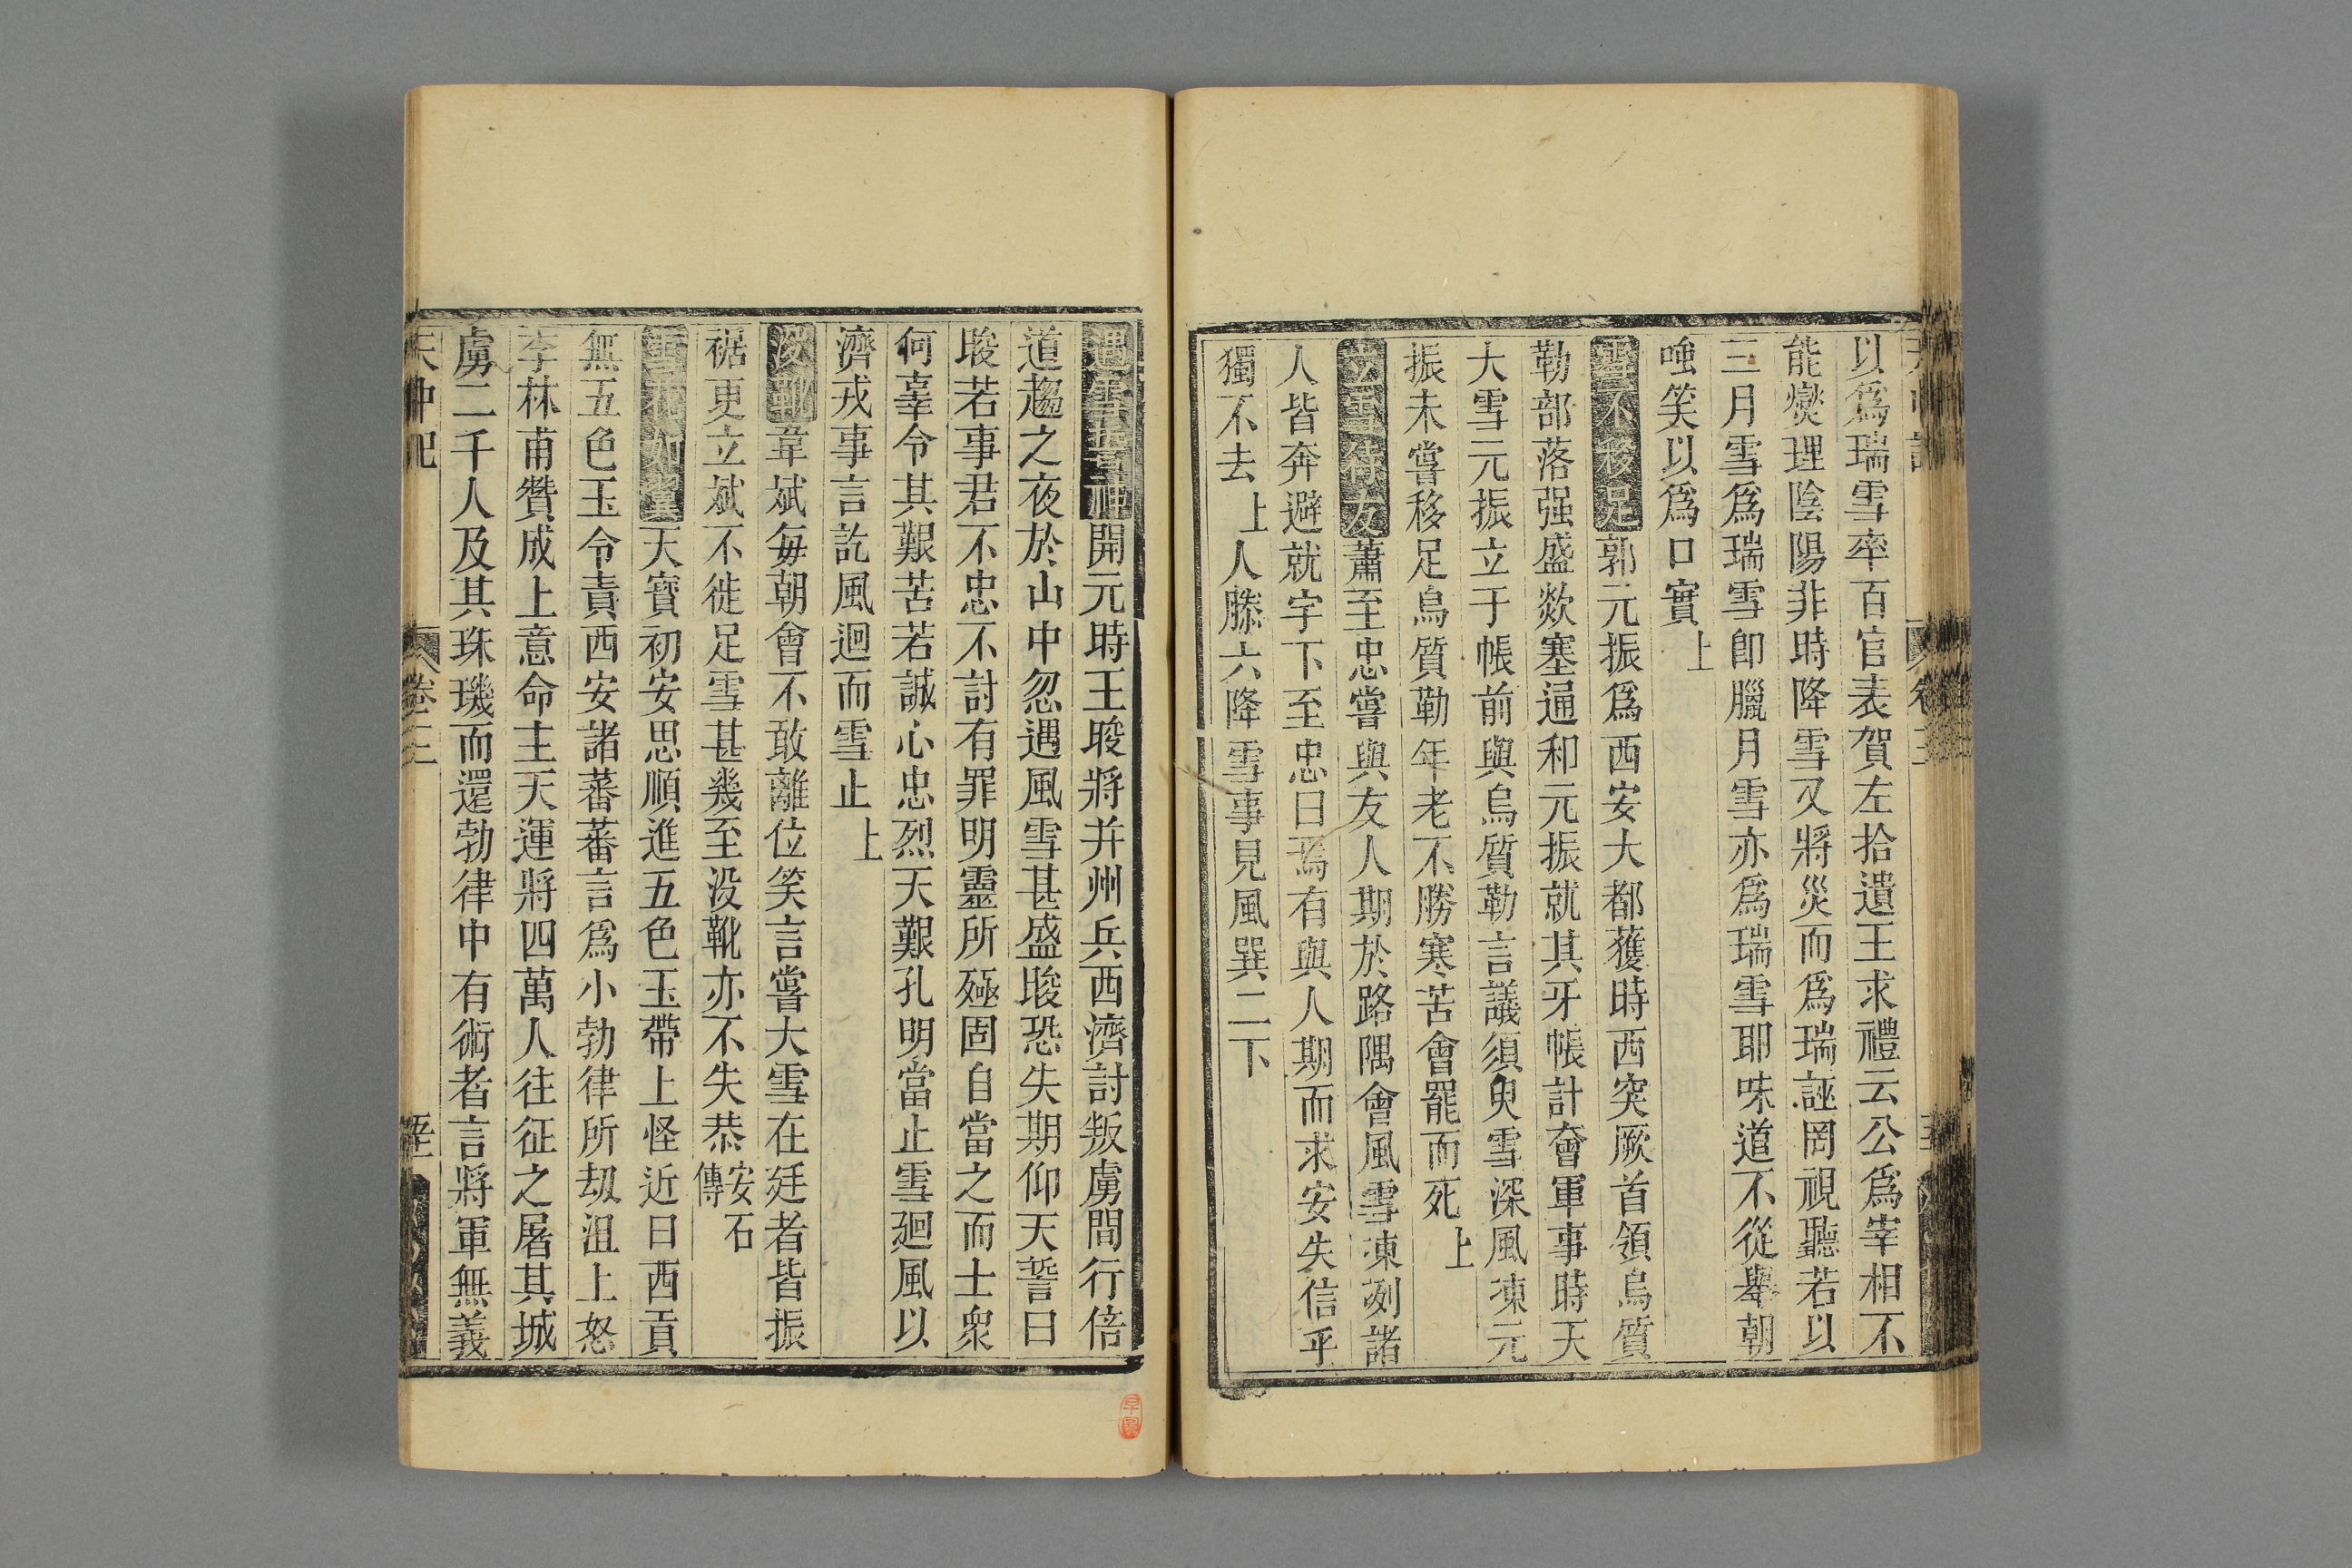 以爲瑞雪率百官表賀左拾遺王求禮云公爲宰相不
能燮理陰陽非時降雪又將災而爲瑞誣罔視聽若以
三月雪爲瑞雪卽臘月雪亦爲瑞雪耶味道不從舉朝
嗤笑以爲口實上
雪不移足郭元振爲西安大都蒦時西突厥首領烏質
勒部落强盛欵塞通和元振就其牙帳計會軍事時天
大雪元振立于帳前與烏質勒言議須臾雪深風凍元
振未嘗移足烏質勒年老不勝寒苦會罷而死上
立雪待友蕭至忠嘗與友人期於路隅會風雪凍冽諸
人皆奔避就宇下至忠曰焉有與人期而求安失信乎
獨不去上人滕六降雪事見風巽二下
遇雪告神開元時王晙將并州兵西濟討叛虜間行倍
道趨之夜於山中忽遇風雪甚盛晙恐失期仰天誓曰
晙若事君不忠不討有罪明靈所殛固自當之而士衆
何辜令其艱苦若誠心忠烈天艱孔明當止雪廻風以
濟戎事言訖風迴而雪止上
沒靴韋斌每朝會不敢離位笑言嘗大雪在廷者皆振
裾更立斌不徙足雪甚幾至没靴亦不失恭安石傳
雪花如翼天寶初安思順進五色玉帶上怪近日西貢
無五色玉令責西安諸蕃蕃言爲小勃律所刼沮上怒
李林甫贊成上意命主天運將四萬人往征之屠其城
虜二千人及其珠璣而還勃律中有術者言將軍無義
天中記 卷三